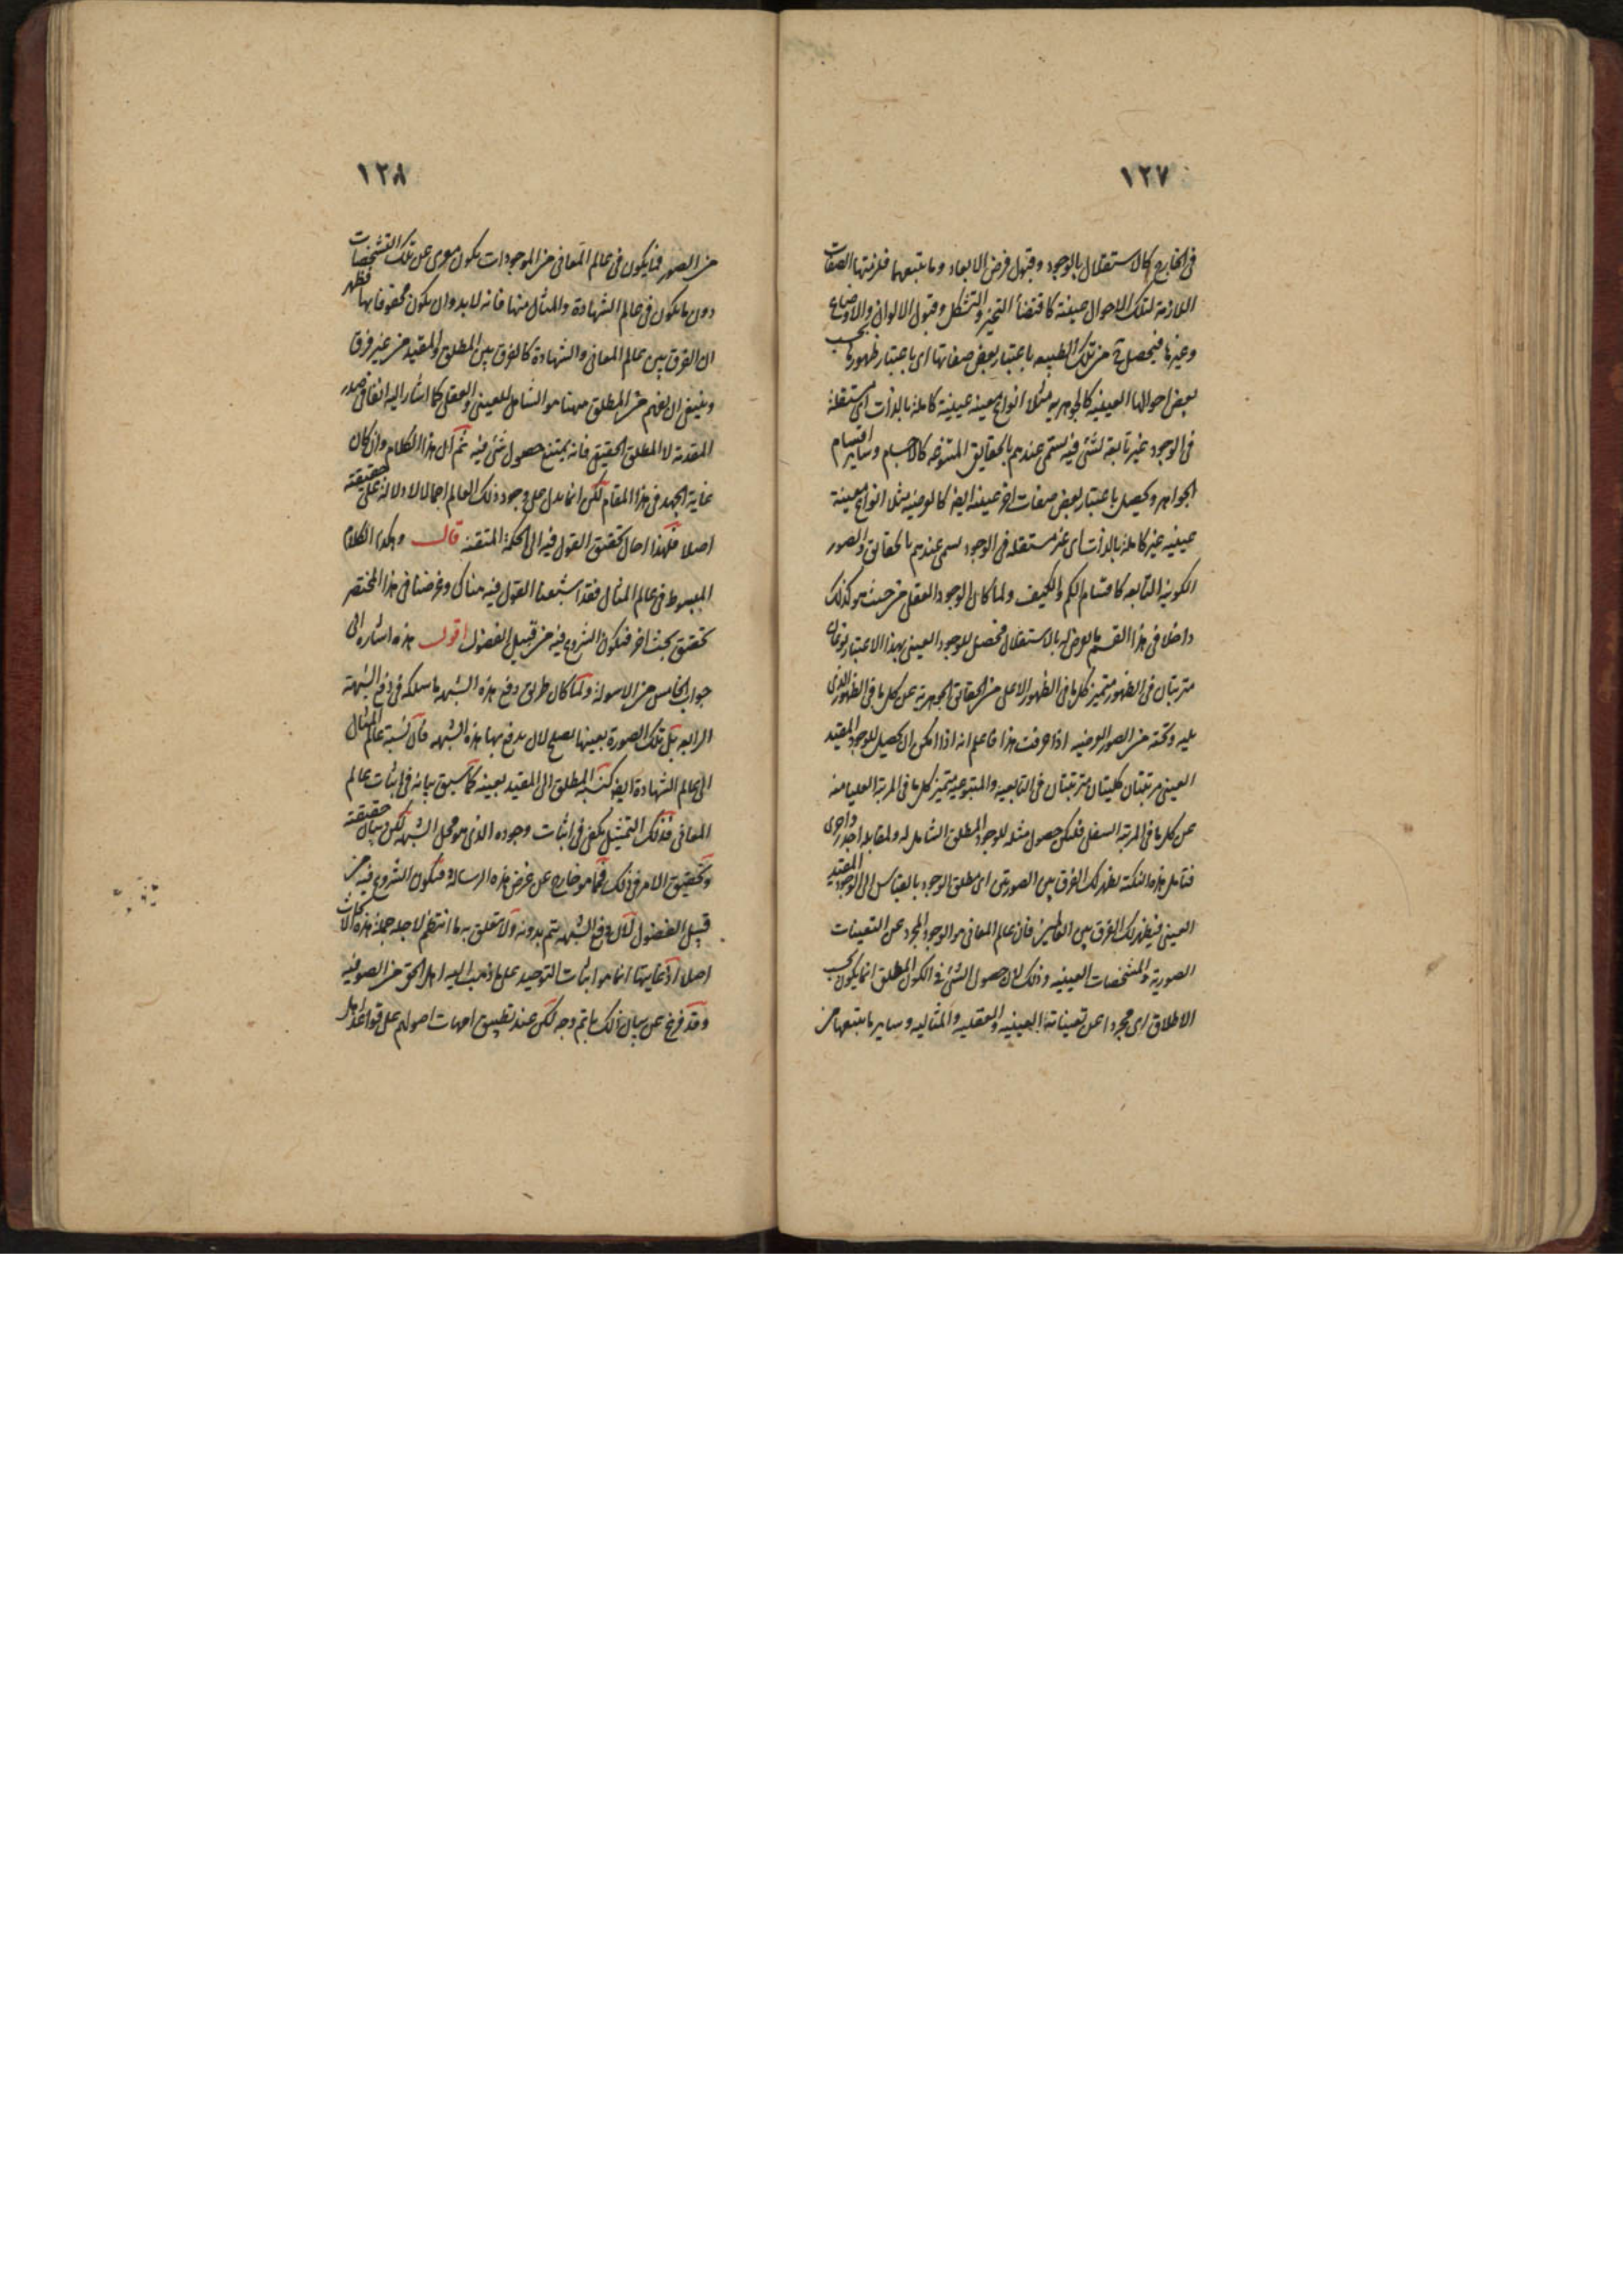 ١٢٧
فى الخارج كالاستقلال بالوجود وقبول فرض الابعاد وما يتبعهما فلزمتها الصفات
اللازمة لتلك الاحوال عينة كاقتضاء التحيز والتشكل وقبول الالوان والاوضاع
وغيرها فيحصل ح من تلك الطبيعه باعتبار بعض صفاتها اى باعتبار ظهورها بحسب
بعض احوالها العينيه كالجوهريه مثلا انواع معينه عينية كاملة بالذات اى مستقلة
فى الوجود غير تابعة لشئ فيه تسمى عندهم بالحقايق المتنوعه كالاجسام وساير اقسام
الجواهر ويحصل باعتبار بعض صفات اخر عينه ايضا كالعرضيه مثلا انواع معينة
عينيه غير كاملة بالذات اى غير مستقله فى الوجود يسمى عندهم بالحقايق والصور
الكونيه التابعه كاقسام الكم والكيف ولما كان الوجود العقلى من حيث هو كذلك
داخلا فى هذا القسم بالعرض له بالاستقلال فحصل للوجود العينى بهذا الاعتبار نوعان
مترتبان فى الظهور متميز كل ما فى الظهور الاعلى من الحقايق الجوهرية عن كل ما فى الظهور الذى
يليه وتحته من الصور العرضيه اذا عرفت هذا فاعلم انه اذا امكن ان يحصل للوجود المقيد
العينى مرتبتان كليتان مترتبتان فى التابعيه والمتبوعيه يتميز كل ما فى المرتبة العليا منه
عن كل ما فى المرتبة السفلى فليكن حصول مثله للوجود المطلق الشامل له ولمقابله اجدر واحرى
فتامل هذه النكتة يظهر لك الفرق بين الصورتين اى مطلق الوجود بالقياس الى الوجود المقيد
العينى فيظهر لك الفرق بين العالمين فان عالم المعانى هو الوجود المجرد عن التعينات
الصورية والمشخصات العينيه وذلك لان حصول الشئ فى الكون المطلق انما يكون بحسب
الاطلاق اى مجردا عن تعيناته العينيه والعقليه والمثاليه وساير ما يتبعها من
١٢٨
من الصور فما يكون فى عالم المعانى من الموجودات يكون معرى عن تلك التشخصات
دون ما يكون فى عالم الشهادة والمثال منها فانه لا بد وان يكون محفوفا بها فظهر
ان الفرق بين عالم المعانى والشهادة كالفرق بين المطلق والمقيد من غير فرق
وينبغى ان يفهم من المطلق ههنا هو الشامل للعينى والعقلى كما اشار اليه انفا فى صدر
المقدمة لا المطلق الحقيقى فانه يمتنع حصول شئ فيه ثم ان هذا الكلام وان كان
غاية الجهد فى هذا المقام لكن انما يدل على وجود ذلك العالم اجمالا لا دلالة على حقيقته
اصلا فلهذا احال تحقيق القول فيه الى الحكمة المتقنة قال وهكذا الكلام
المبسوط فى عالم المثال فقد اشبعنا القول فيه هناك وغرضنا فى هذا المختصر
تحقيق بحث اخر فيكون الشروع فيه من قبيل الفضول اقول هذه اشاره الى
جواب الخامس من الاسولة ولما كان طريق دفع هذه الشبهه ما سلكه فى دفع الشبهة
الرابعه بل تلك الصورة بعينها يصلح لان يدفع بها هذه الشبهه فان نسبة عالم المثال
الى عالم الشهادة ايضا كنسبة المطلق الى المقيد بعينه كما سبق بيانه فى اثبات عالم
المعانى فذلك التمثيل يكفى فى اثبات وجوده الذى هو محل الشبهه لكن بيان حقيقته
وتحقيق الامر فى ذلك فمما هو خارج عن غرض هذه الرسالة فيكون الشروع فيه من
قبيل الفضول لان دفع الشبهه يتم بدونه ولا يتعلق به ما انتظم لاجله جملة هذه الابحاث
اصلا اذ غايتها انما هو اثبات التوحيد على ما ذهب اليه اهل الحق من الصوفيه
وقد فرغ عن بيان ذلك باتم وجه لكن عند تطبيق امهات اصولهم على قواعد اهل